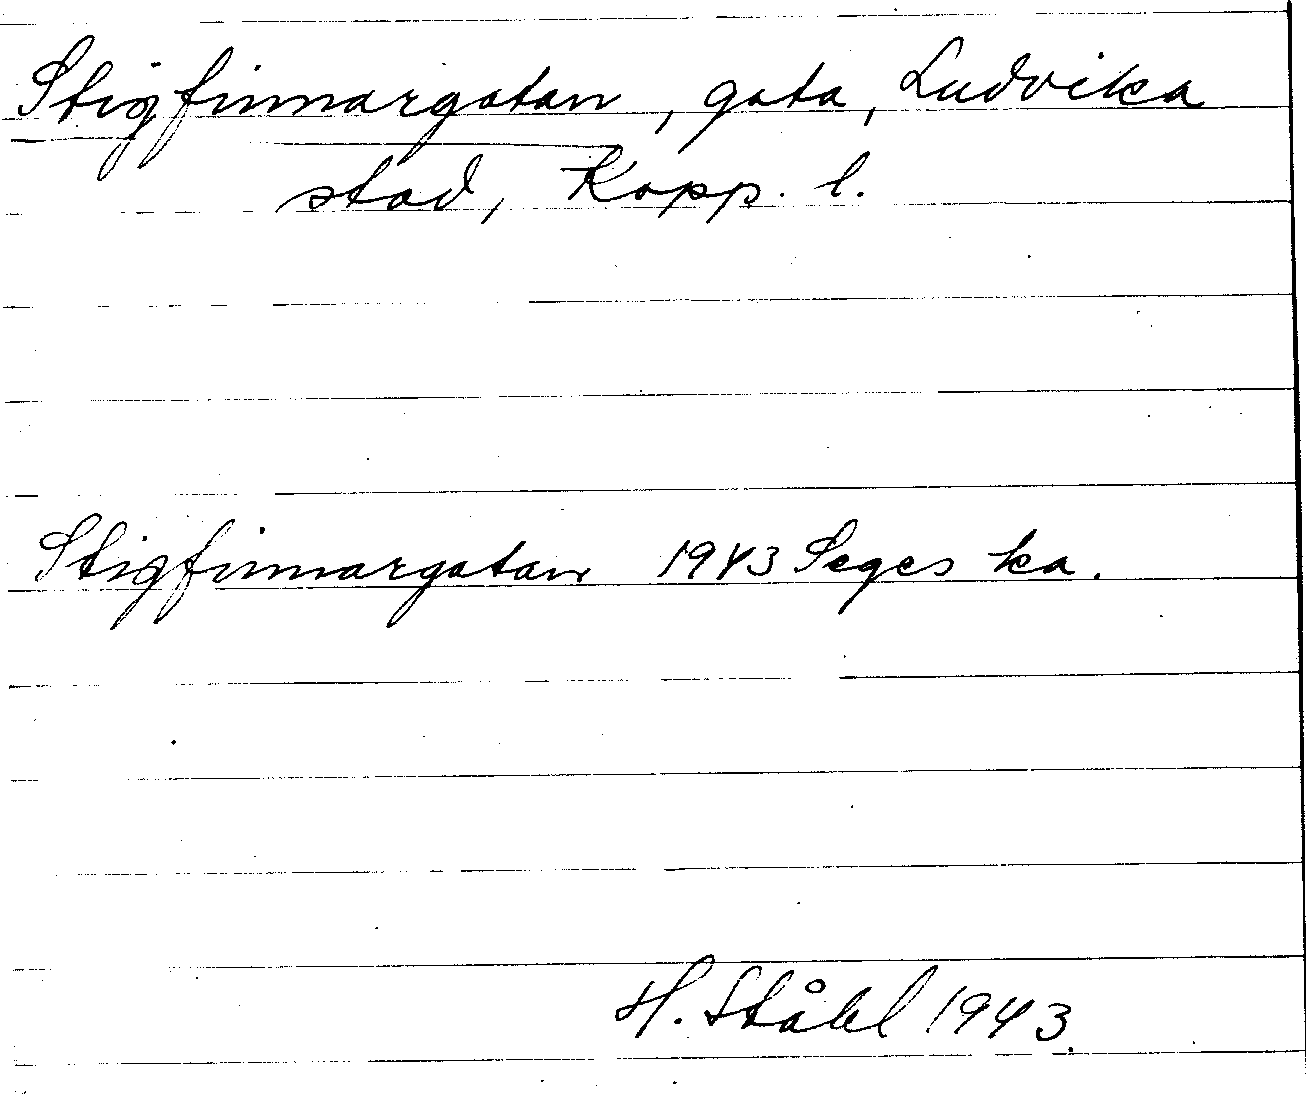 Stigfinnargatan, gata, Ludvika
stad, Kopp. l.
Stigfinnargatan 1943 Seges ka.
H. Ståhl 1943.